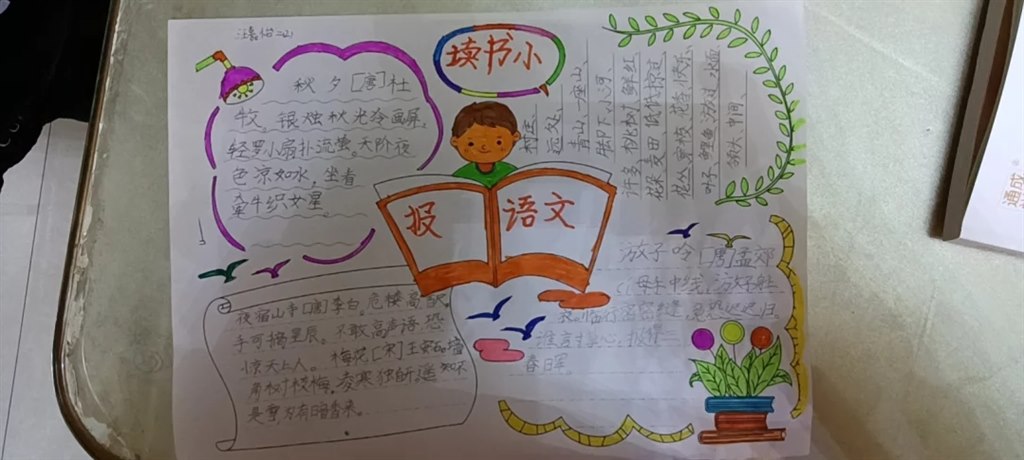 读书小
报
语文
秋夕[唐]杜
牧。银烛秋光冷画屏,
轻罗小扇扑流萤。天阶夜
色凉如水,坐看
牵牛织女星。
村还、
远处、
青山、一座山、
脚下、小河
许多、桃树、鲜红
花朵、麦田、低低掠过
从、穿枝、花香、快乐
叶子、鲤鱼、游过、水面
锄头、中间、
夜宿山寺[唐]李白。危楼高百尺,
手可摘星辰。不敢高声语,恐
惊天上人。梅花[宋]王安石墙
角数枝梅,凌寒独自开。遥知不
是雪,为有暗香来。
游子吟[唐]孟郊
慈母手中线,游子身上
衣。临行密密缝,意恐迟迟归。
谁言寸草心,报得三
春日军。
通成